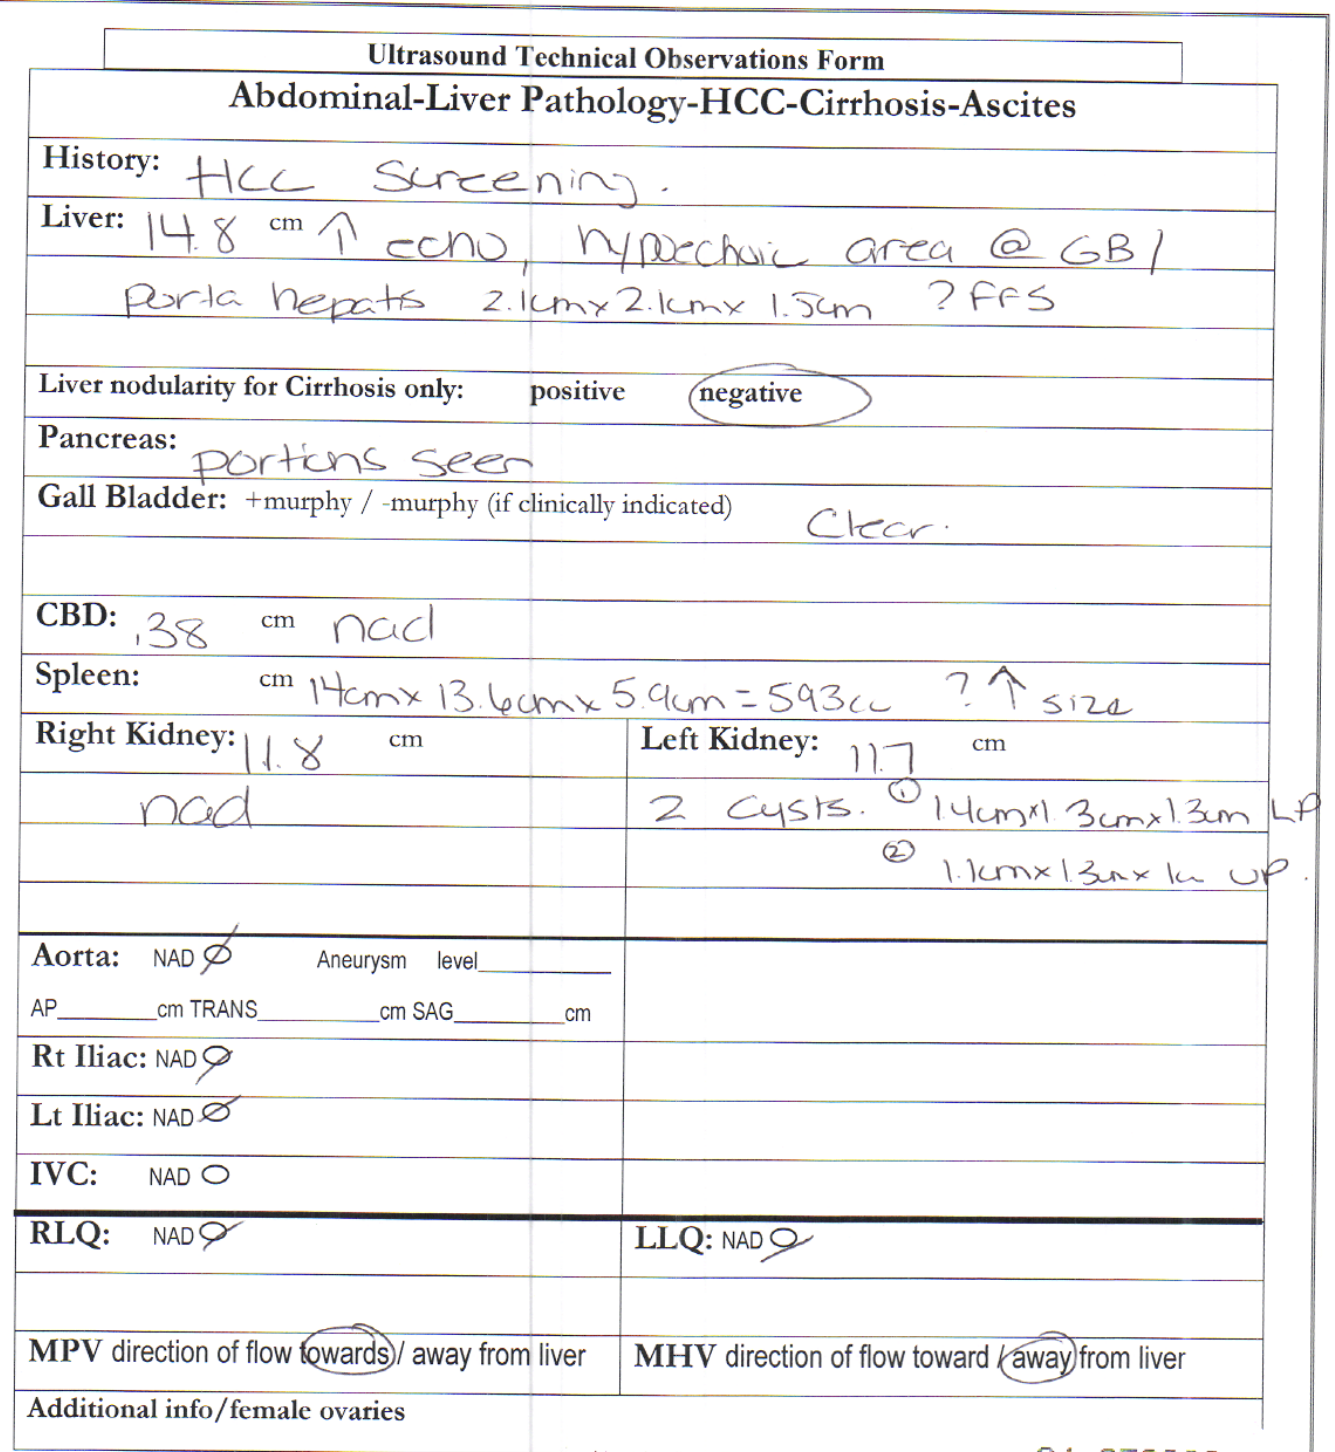 Ultrasound Technical Observations Form
Abdominal-Liver Pathology-HCC-Cirrhosis-Ascites
History: HCC Screening.
Liver: 14.8 cm ↑ echo, hypoechoic area @ GB/
porta hepatis 2.1cm x 2.1cm x 1.5cm ? FFS
Liver nodularity for Cirrhosis only: positive negative
Pancreas: portions seen
Gall Bladder: +murphy / -murphy (if clinically indicated) Clear.
CBD: .38 cm nad
Spleen: cm 14cm x 13.6cm x 5.9cm = 593cc ? ↑ size
Right Kidney: 11.8 cm
nad
Left Kidney: 11.7 cm
2 cysts. ① 1.4cm x 1.3cm x 1.3cm LP
② 1.1cm x 1.3cm x 1cm UP.
Aorta: NAD Aneurysm level______
AP______cm TRANS______cm SAG______cm
Rt Iliac: NAD
Lt Iliac: NAD
IVC: NAD
RLQ: NAD
LLQ: NAD
MPV direction of flow towards / away from liver
MHV direction of flow toward / away from liver
Additional info/female ovaries